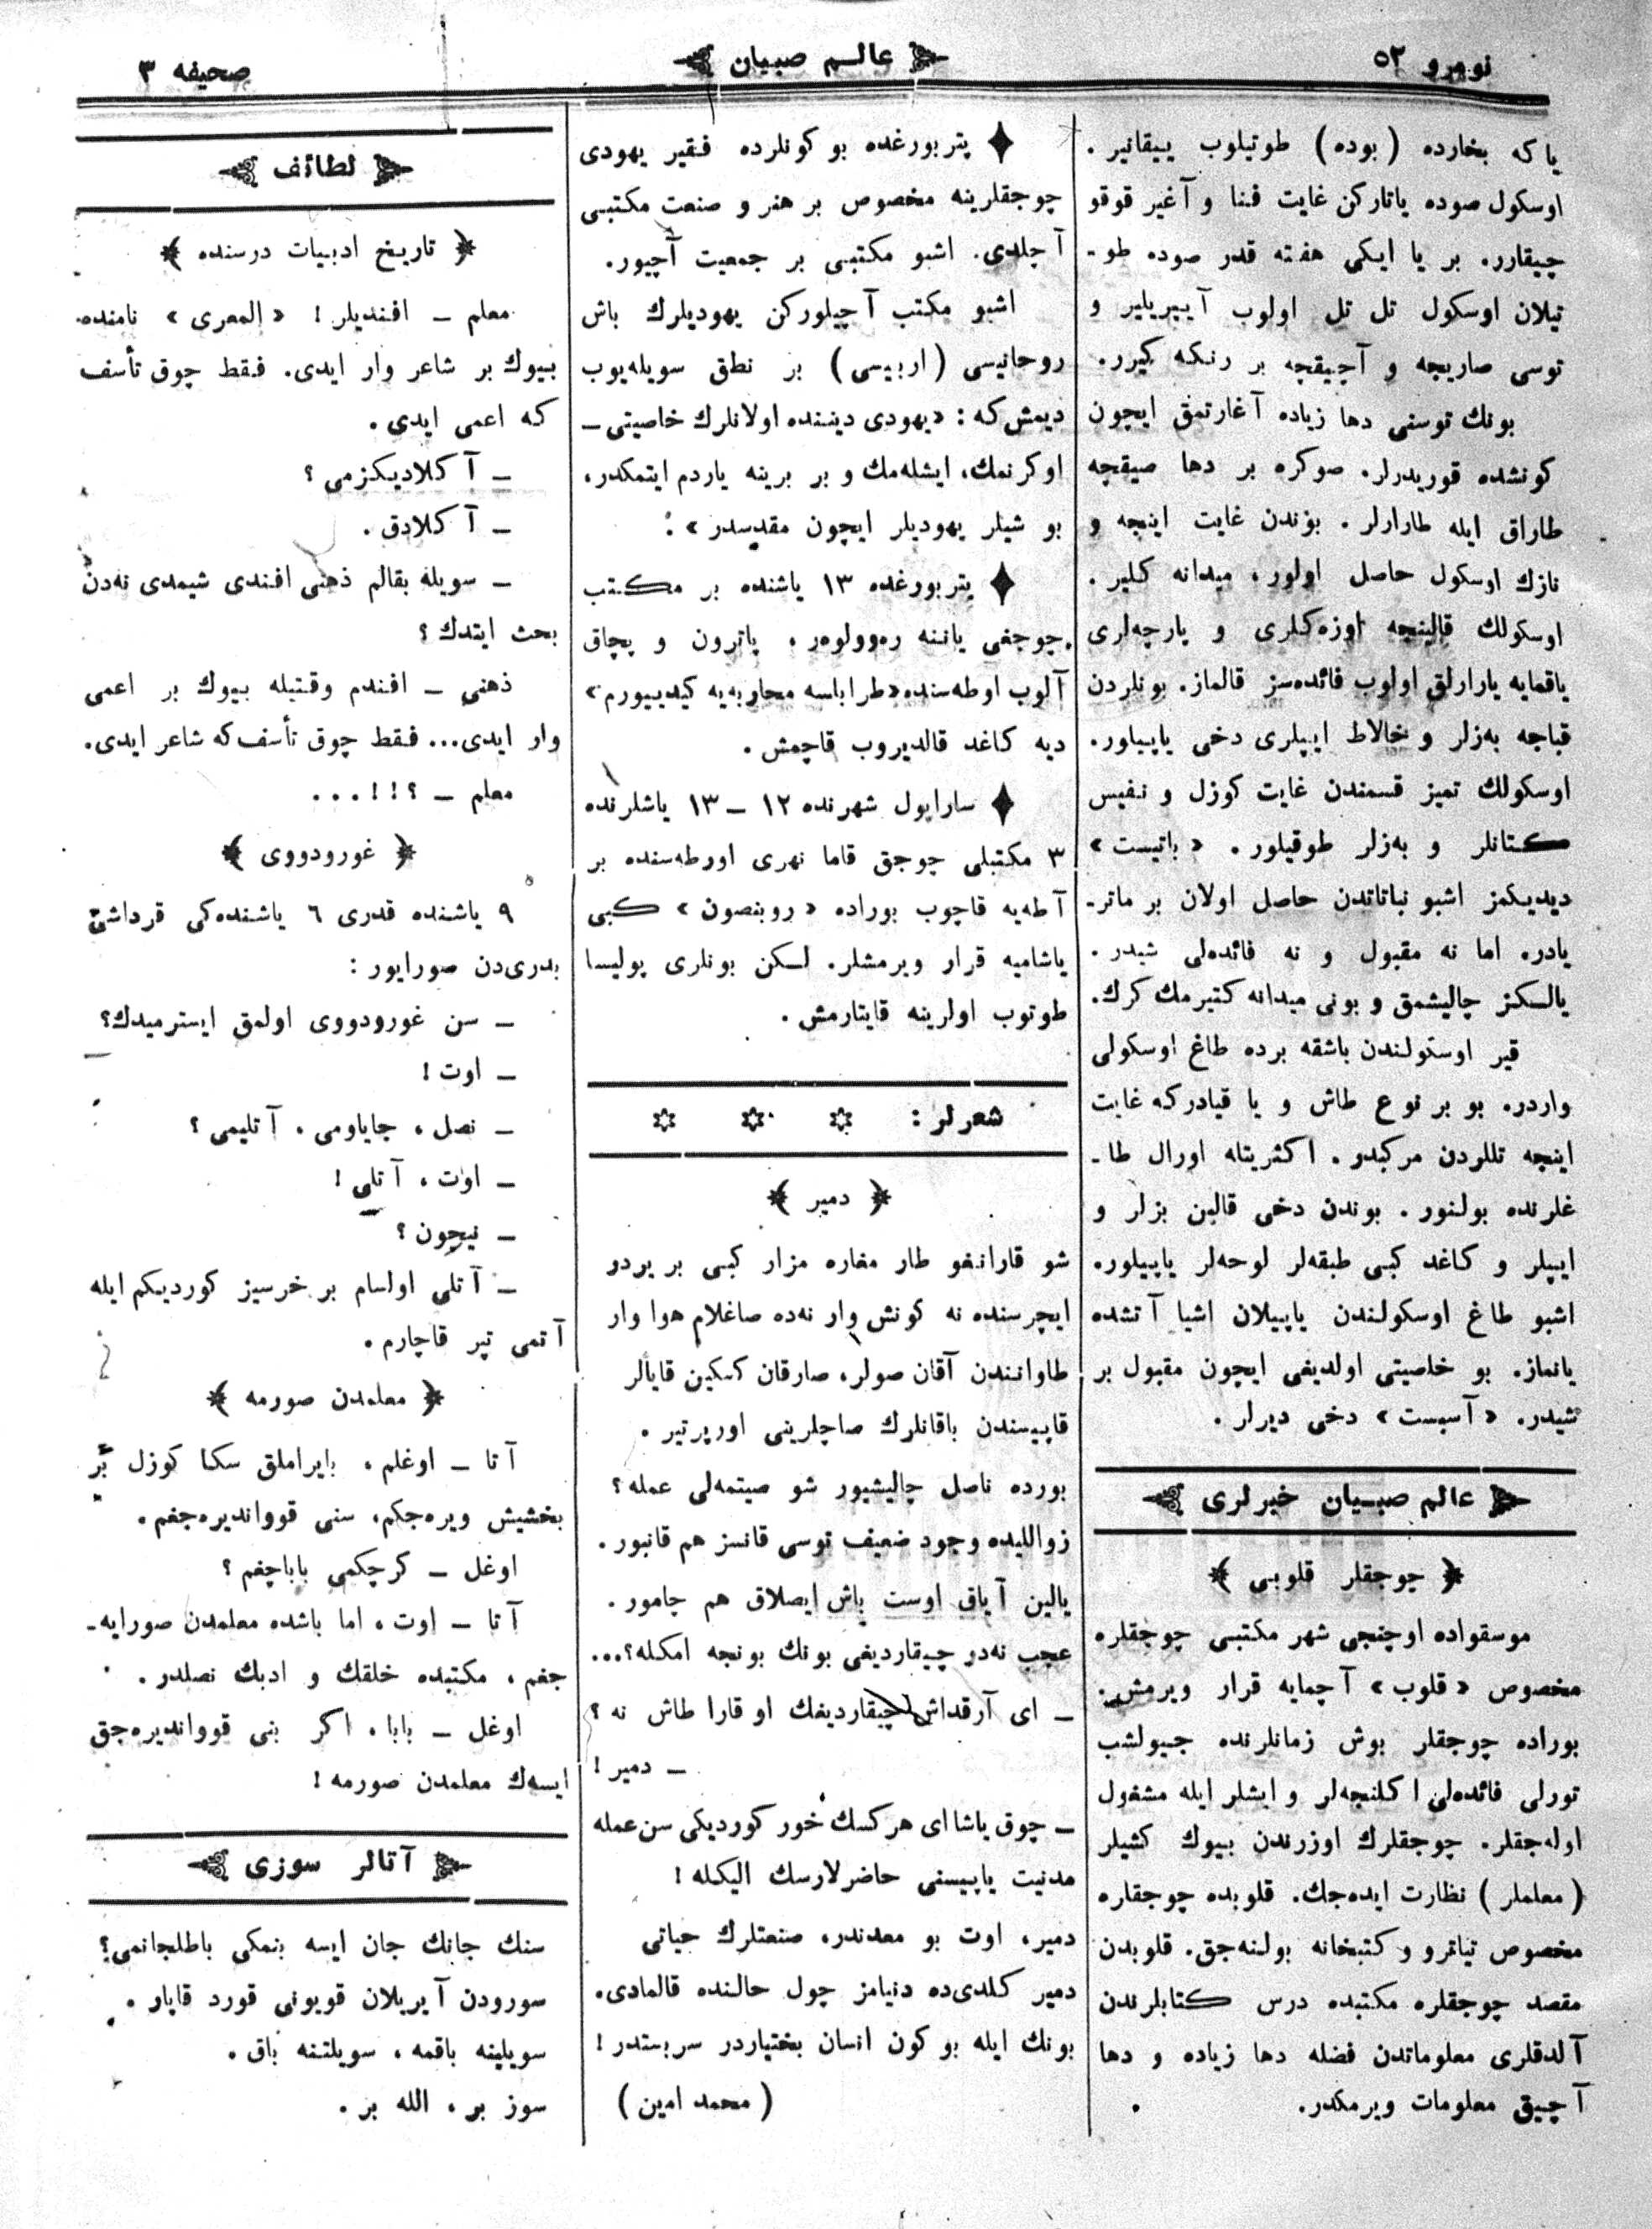 نومرو ٥٢
عالـم صبيان
صحيفه ٣
ياكه بخارده (بوده) طوتيلوب ييقانير.
اوسكول صوده ياتاركن غايت فنا و آغير قوقو
چيقارر. بر يا ايكى هفته قدر صوده طو-
تيلان اوسكول تل تل اولوب آييريلير و
توسى صاريجه و آچيقچه بر رنكه كيرر.
بونك توسنى دها زياده آغارتمق ايچون
كونشده قوريدرلر. صوكره بر دها صيقچه
طاراق ايله طارارلر. بوندن غايت اينجه و
نازك اوسكول حاصل اولور، ميدانه كلير.
اوسكولك قالينجه اوزه‌كلرى و پارچه‌لرى
ياقمايه يارارلق اولوب فائده‌سز قالماز. بونلردن
قباجه به‌زلر و خالاط ايپلرى دخى ياپيلور.
اوسكولك تميز قسمندن غايت كوزل و نفيس
كتانلر و به‌زلر طوقيلور. «باتيست»
ديديكمز اشبو نباتاتدن حاصل اولان بر ماتر-
يادر. اما نه مقبول و نه فائده‌لى شيدر.
يالكز چاليشمق و بونى ميدانه كتيرمك كرك.
قير اوسكولندن باشقه برده طاغ اوسكولى
واردر. بو بر نوع طاش و يا قيادركه غايت
اينجه تللردن مركبدر. اكثريتله اورال طا-
غلرنده بولنور. بوندن دخى قالين بزلر و
ايپلر و كاغد كبى طبقه‌لر لوحه‌لر ياپيلور.
اشبو طاغ اوسكولندن ياپيلان اشيا آتشده
يانماز. بو خاصيتى اولديغى ايچون مقبول بر
شيدر. «آسبست» دخى ديرلر.
عالم صبـيان خبرلرى
﴿ چوجقلر قلوبى ﴾
موسقواده اوچنجى شهر مكتبى چوجقلره
مخصوص «قلوب» آچمايه قرار ويرمش.
بوراده چوجقلر بوش زمانلرنده جيولشب
تورلى فائده‌لى اكلنجه‌لر و ايشلر ايله مشغول
اوله‌جقلر. چوجقلرك اوزرندن بيوك كشيلر
(معلملر) نظارت ايده‌جك. قلوبده چوجقلره
مخصوص تياترو و كتبخانه بولنه‌جق. قلوبدن
مقصد چوجقلره مكتبده درس كتابلرندن
آلدقلرى معلوماتدن فضله دها زياده و دها
آچيق معلومات ويرمكدر.
♦ پتربورغده بو كونلرده فقير يهودى
چوجقلرينه مخصوص بر هنر و صنعت مكتبى
آچلدى. اشبو مكتبى بر جمعيت آچيور.
اشبو مكتب آچيلوركن يهوديلرك باش
روحانيسى (اربيسى) بر نطق سويله‌يوب
ديمش كه: «يهودى ديننده اولانلرك خاصيتى –
اوكرنمك، ايشله‌مك و بر برينه ياردم ايتمكدر،
بو شيلر يهوديلر ايچون مقدسدر».
♦ پتربورغده ١٣ ياشنده بر مكتب
چوجغى ياننه ره‌وولوه‌ر، پاترون و پچاق
آلوب اوطه‌سنده «طرابلسه محاربه‌يه كيدييورم»
ديه كاغد قالديروب قاچمش.
♦ ساراپول شهرنده ١٢ – ١٣ ياشلرنده
٣ مكتبلى چوجق قاما نهرى اورطه‌سنده بر
آطه‌يه قاچوب بوراده «روبنصون» كبى
ياشاميه قرار ويرمشلر. لكن بونلرى پوليسا
طوتوب اولرينه قايتارمش.
شعرلر:
﴿ دمير ﴾
شو قارانغو طار مغاره مزار كبى بر يردر
ايچرسنده نه كونش وار نه‌ده صاغلام هوا وار
طاوانندن آقان صولر، صارقان كسكين قايالر
قاپيسندن باقانلرك صاچلرينى اورپرتير.
بورده ناصل چاليشيور شو صيتمه‌لى عمله؟
زواللیده وجود ضعيف توسى قانسز هم قانبور.
يالين آياق اوست باش ايصلاق هم چامور.
عجب نه‌در چيقارديغى بونك بونجه امكله؟...
– اى آرقداش چيقارديغك او قارا طاش نه؟
– دمير!
– چوق ياشا اى هركسك خور كورديكى سن عمله
مدنيت ياپيسنى حاضرلارسك اليكله!
دمير، اوت بو معدندر، صنعتلرك حياتى
دمير كلدى‌ده دنيامز چول حالنده قالمادى.
بونك ايله بو كون انسان بختياردر سربستدر!
(محمد امين)
لطائف
﴿ تاريخ ادبيات درسنده ﴾
معلم – افنديلر! «المعرى» نامنده
بيوك بر شاعر وار ايدى. فقط چوق تأسف
كه اعمى ايدى.
– آكلاديكزمى؟
– آكلادق.
– سويله بقالم ذهنى افندى شيمدى نه‌دن
بحث ايتدك؟
ذهنى – افندم وقتيله بيوك بر اعمى
وار ايدى... فقط چوق تأسف كه شاعر ايدى.
معلم – ؟!!...
﴿ غورودووى ﴾
٩ ياشنده قدرى ٦ ياشنده‌كى قرداشى
بدرى‌دن صورايور:
– سن غورودووى اولمق ايسترميدك؟
– اوت!
– نصل، جاياومى، آتليمى؟
– اوت، آتلى!
– نيچون؟
– آتلى اولسام بر خرسيز كورديكم ايله
آتمى تپر قاچارم.
﴿ معلمدن صورمه ﴾
آتا – اوغلم، بايراملق سكا كوزل بر
بخشيش ويره‌جكم، سنى قوواندیره‌جغم.
اوغل – كرچكمى باباچغم؟
آتا – اوت، اما باشده معلمدن صورايه-
جغم، مكتبده خلقك و ادبك نصلدر.
اوغل – بابا، اكر بنى قوواندیره‌جق
ايسه‌ك معلمدن صورمه!
آتالر سوزى
سنك جانك جان ايسه بنمكى باطلجانمى؟
سورودن آيريلان قويونى قورد قاپار.
سويلينه باقمه، سويلتنه باق.
سوز بر، الله بر.